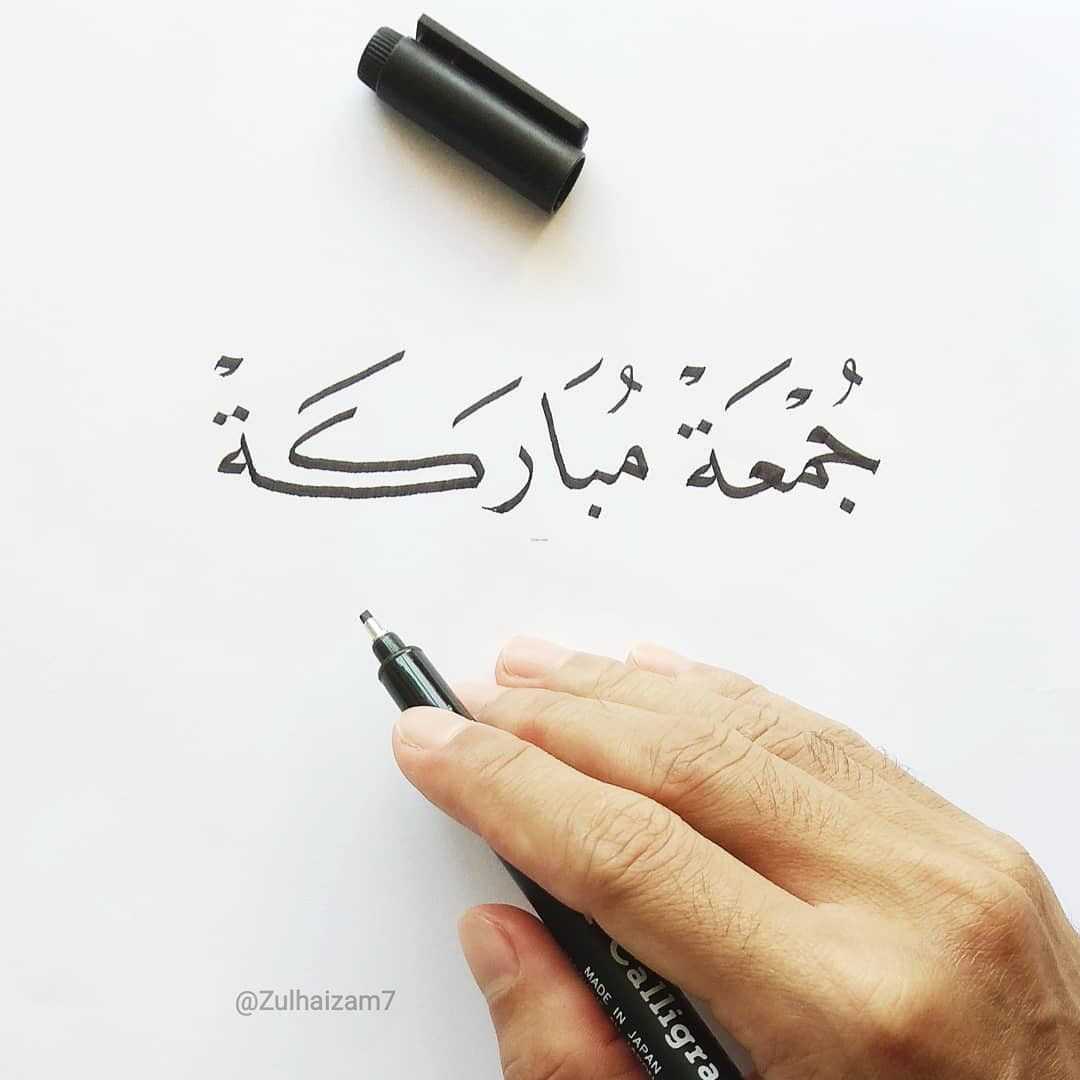 جُمْعَةْ مُبَارَكَةْ
@Zulhaizam7
Calligra
MADE IN JAPAN